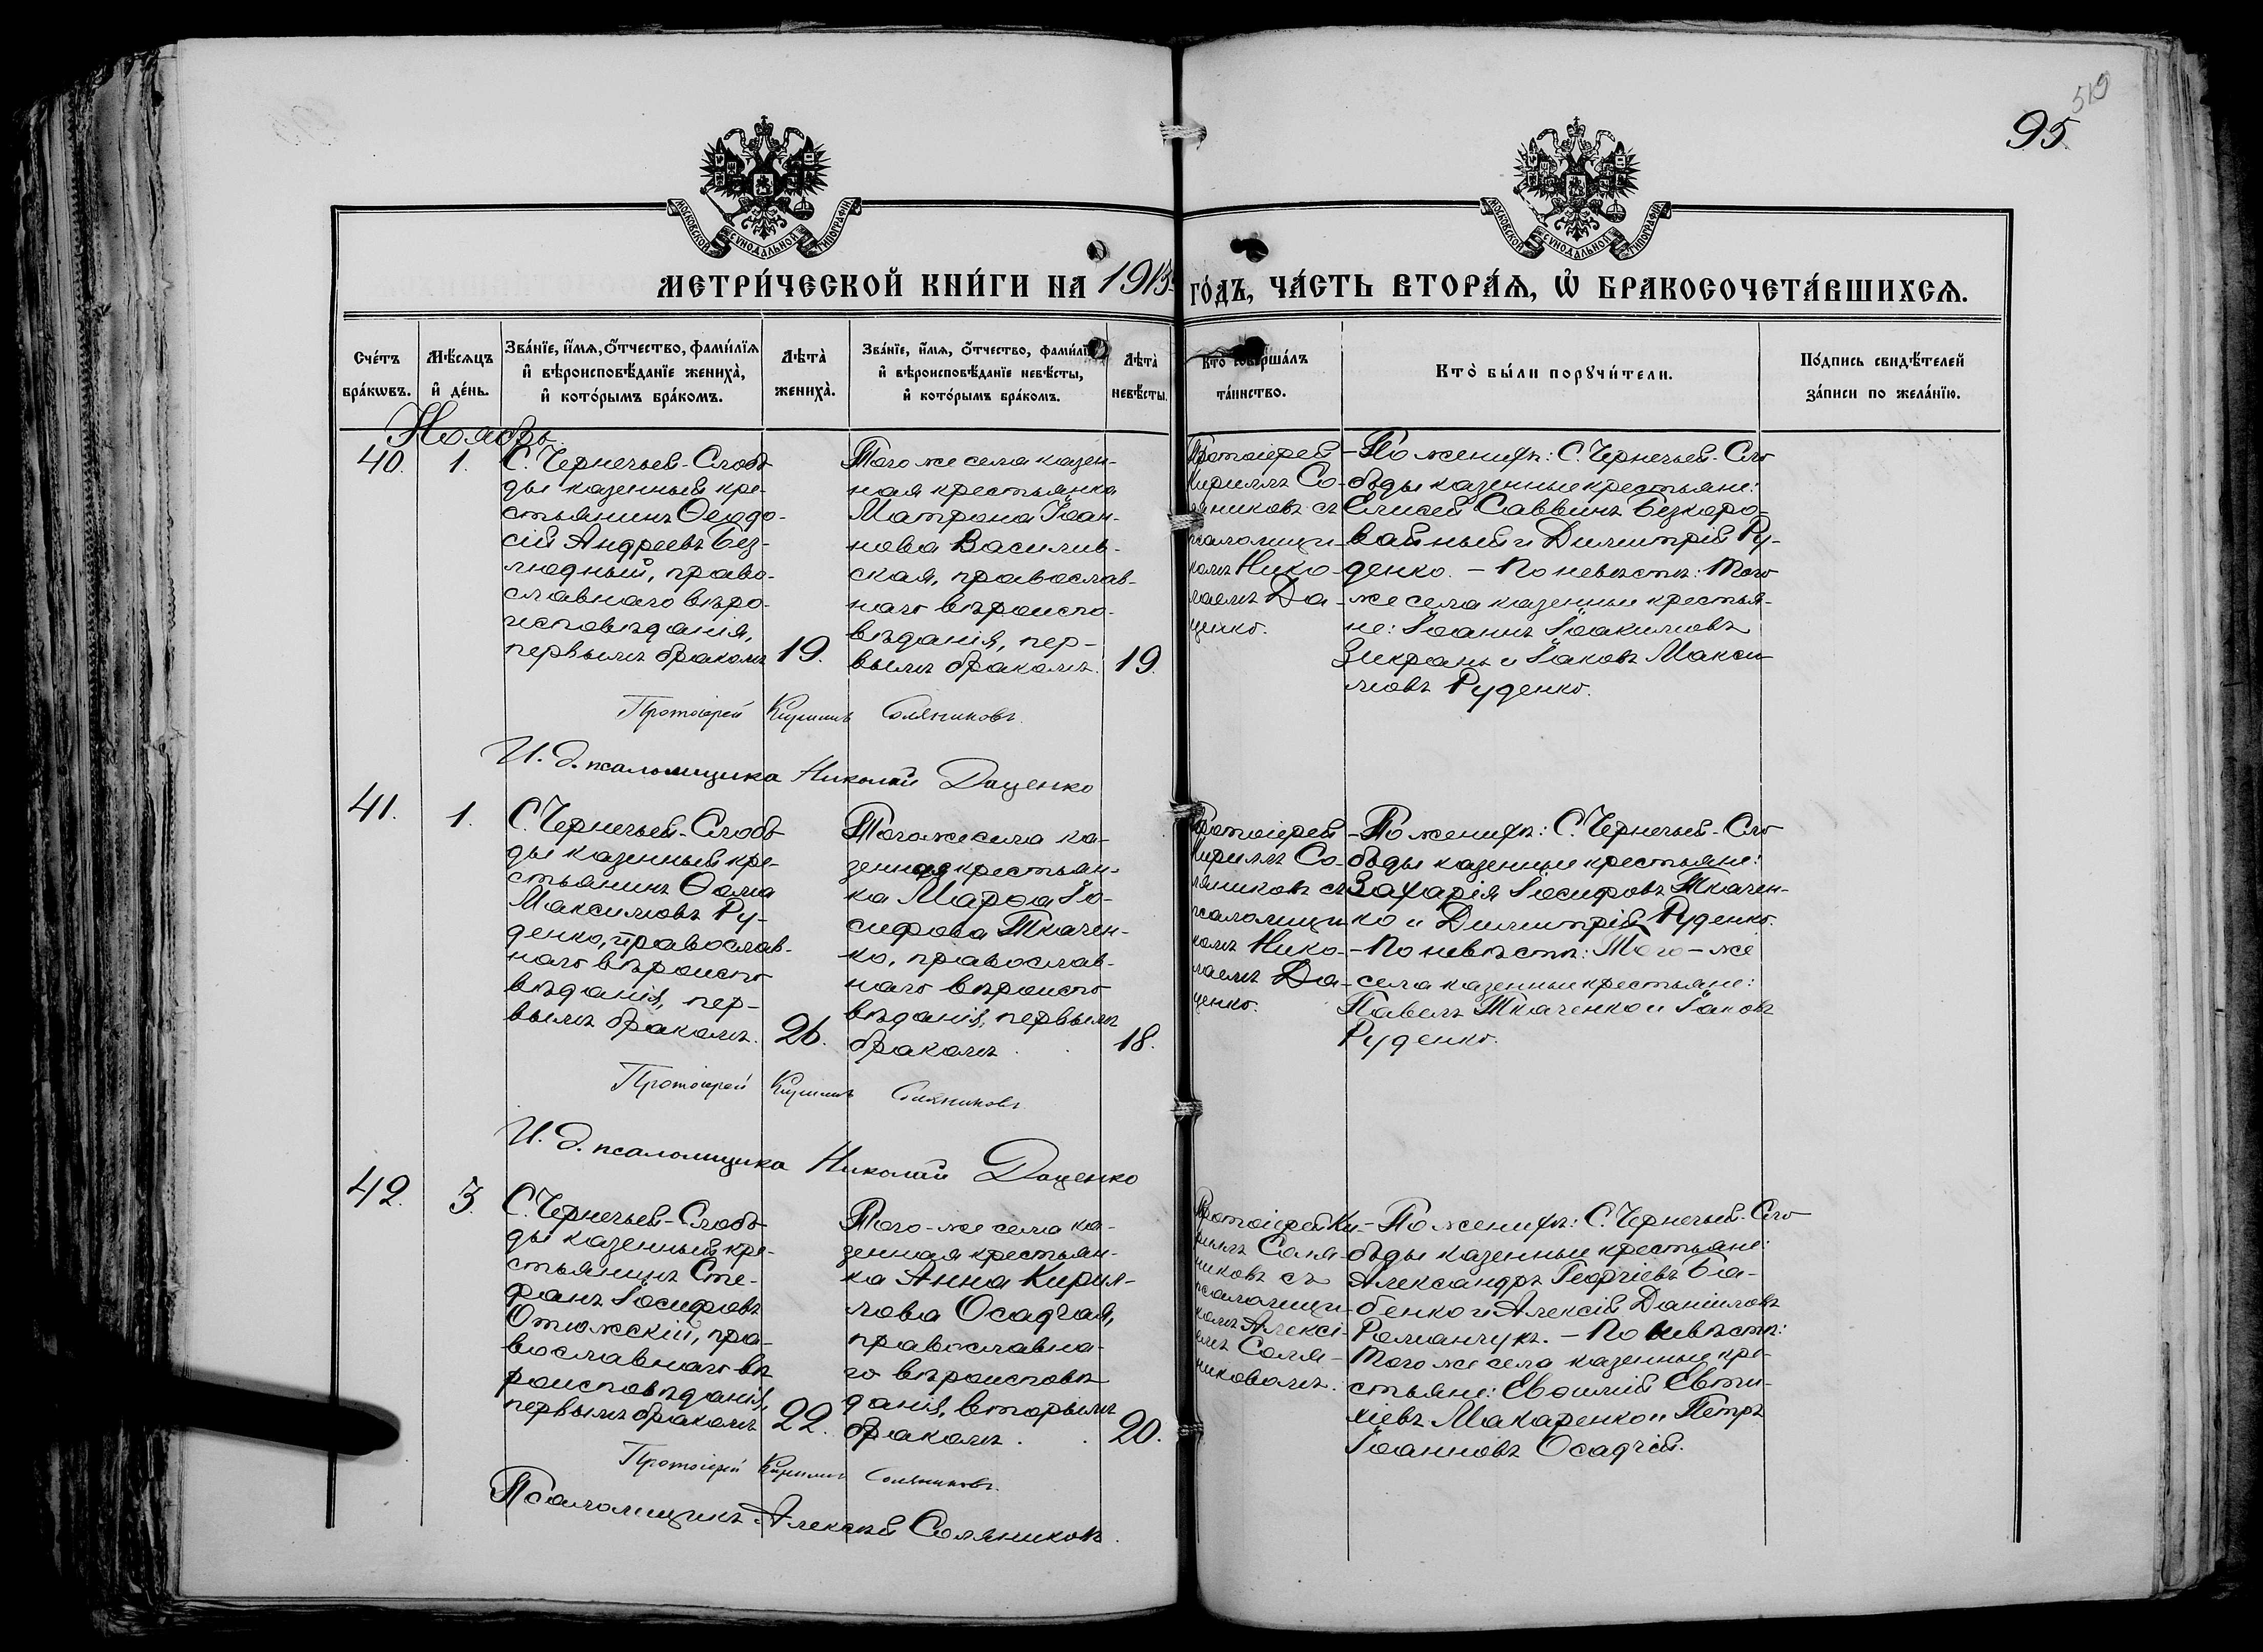 519
95.
МОСКОВСКОЙ СУНОДАЛЬНОЙ ТИПОГРАФІИ
МОСКОВСКОЙ СУНОДАЛЬНОЙ ТИПОГРАФІИ
МЕТРИ́ЧЕСКОЙ КНИ́ГИ НА 1913 ГО́ДЪ, ЧА́СТЬ ВТОРА́Ѧ, Ѡ҆ БРАКОСОЧЕТА́ВШИХСѦ.
Сче́тъ
бра́кѡвъ.
Мѣ́сѧцъ
и҆ де́нь.
Зва́нїе, и҆́мѧ, ѻ҆́тчество, фами́лїѧ
и҆ вѣроисповѣ́данїе жениха̀,
и҆ кото́рымъ бра́комъ.
Лѣта̀
жениха̀.
Зва́нїе, и҆́мѧ, ѻ҆́тчество, фами́лїѧ
и҆ вѣроисповѣ́данїе невѣ́сты,
и҆ кото́рымъ бра́комъ.
Лѣта̀
невѣ́сты.
Кто̀ соверша́лъ
та́инство.
Кто̀ бы́ли порꙋчи́тели.
По́дпись свидѣ́телей
за́писи по жела́нїю.
Ноябрь.
40.
1.
С. Чернечьей-Слобо-
ды казенный кре-
стьянинъ Ѳеодо-
сій Андреевъ Без-
людный, право-
славнаго вѣро-
исповѣданія,
первымъ бракомъ
19.
Того же села казен-
ная крестьянка
Матрона Іоан-
нова Василив-
ская, православ-
наго вѣроиспо-
вѣданія, пер-
вымъ бракомъ.
19.
Протоіерей
Кириллъ Со-
ляниковъ съ
псаломщи-
комъ Нико-
лаемъ Да-
ценко.
-По женихѣ: С. Чернечьей-Сло
боды казенные крестьяне:
Елисей Саввинъ Безкоро-
вайный и Димитрій Ру-
денко. - По невѣстѣ: Того
же села казенные крестья-
не: Іоаннъ Іоакимовъ
Зикрань и Іаковъ Макси-
мовъ Руденко.
Протоіерей Кириллъ Соляниковъ.
И. д. псаломщика Николай Даценко
41.
1.
С. Чернечьей-Слобо-
ды казенный кре-
стьянинъ Ѳома
Максимовъ Ру-
денко, православ-
наго вѣроиспо-
вѣданія, пер-
вымъ бракомъ.
26.
Того же села ка-
зенная крестьян-
ка Марѳа Іо-
сифова Ткачен-
ко, православ-
наго вѣроиспо-
вѣданія, первымъ
бракомъ.
18.
Протоіерей
Кириллъ Со-
ляниковъ съ
псаломщи-
комъ Нико-
лаемъ Да-
ценко.
-По женихѣ: С. Чернечьей-Сло
боды казенные крестьяне:
Захарія Іосифовъ Ткачен-
ко и Димитрій Руденко.
-По невѣстѣ: Того-же
села казенные крестьяне:
Павелъ Ткаченко и Іаковъ
Руденко.
Протоіерей Кириллъ Соляниковъ.
И. д. псаломщика Николай Даценко
42.
3.
С. Чернечьей-Слобо-
ды казенный кре-
стьянинъ Сте-
фанъ Іосифовъ
Отюжскій, пра-
вославнаго вѣ-
роисповѣданія,
первымъ бракомъ
22.
Того-же села ка-
зенная крестьян-
ка Анна Кирил-
лова Осадчая,
православна-
го вѣроисповѣ-
данія, вторымъ
бракомъ.
20.
Протоіерей Ки-
риллъ Соля-
никовъ съ
псаломщи-
комъ Алексі-
емъ Соля-
никовымъ.
-По женихѣ: С. Чернечьей-Сло
боды казенные крестьяне:
Александръ Георгіевъ Ба-
бенко и Алексій Даніиловъ
Романчукъ. - По невѣстѣ:
Того же села казенные кре-
стьяне: Евѳимій Евти-
хіевъ Макаренко и Петръ
Іоанновъ Осадчій.
Протоіерей Кириллъ Соляниковъ.
Псаломщикъ Алексѣй Соляниковъ.